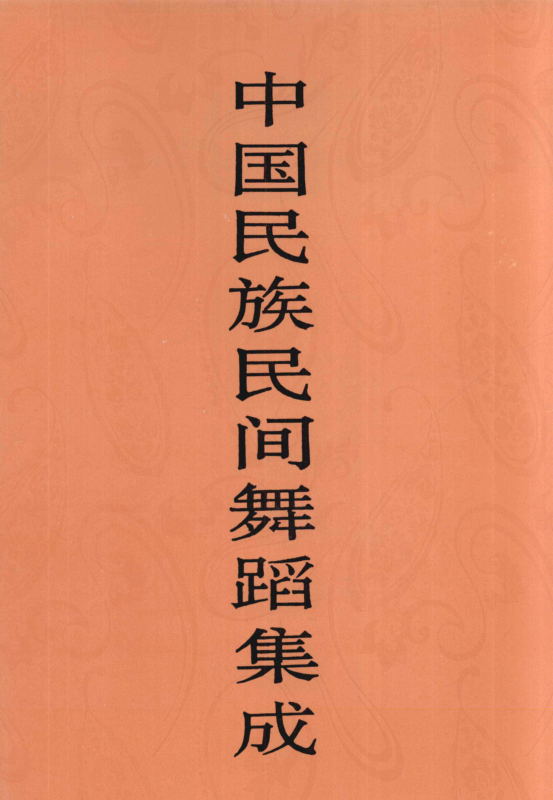 中国民族民间舞蹈集成